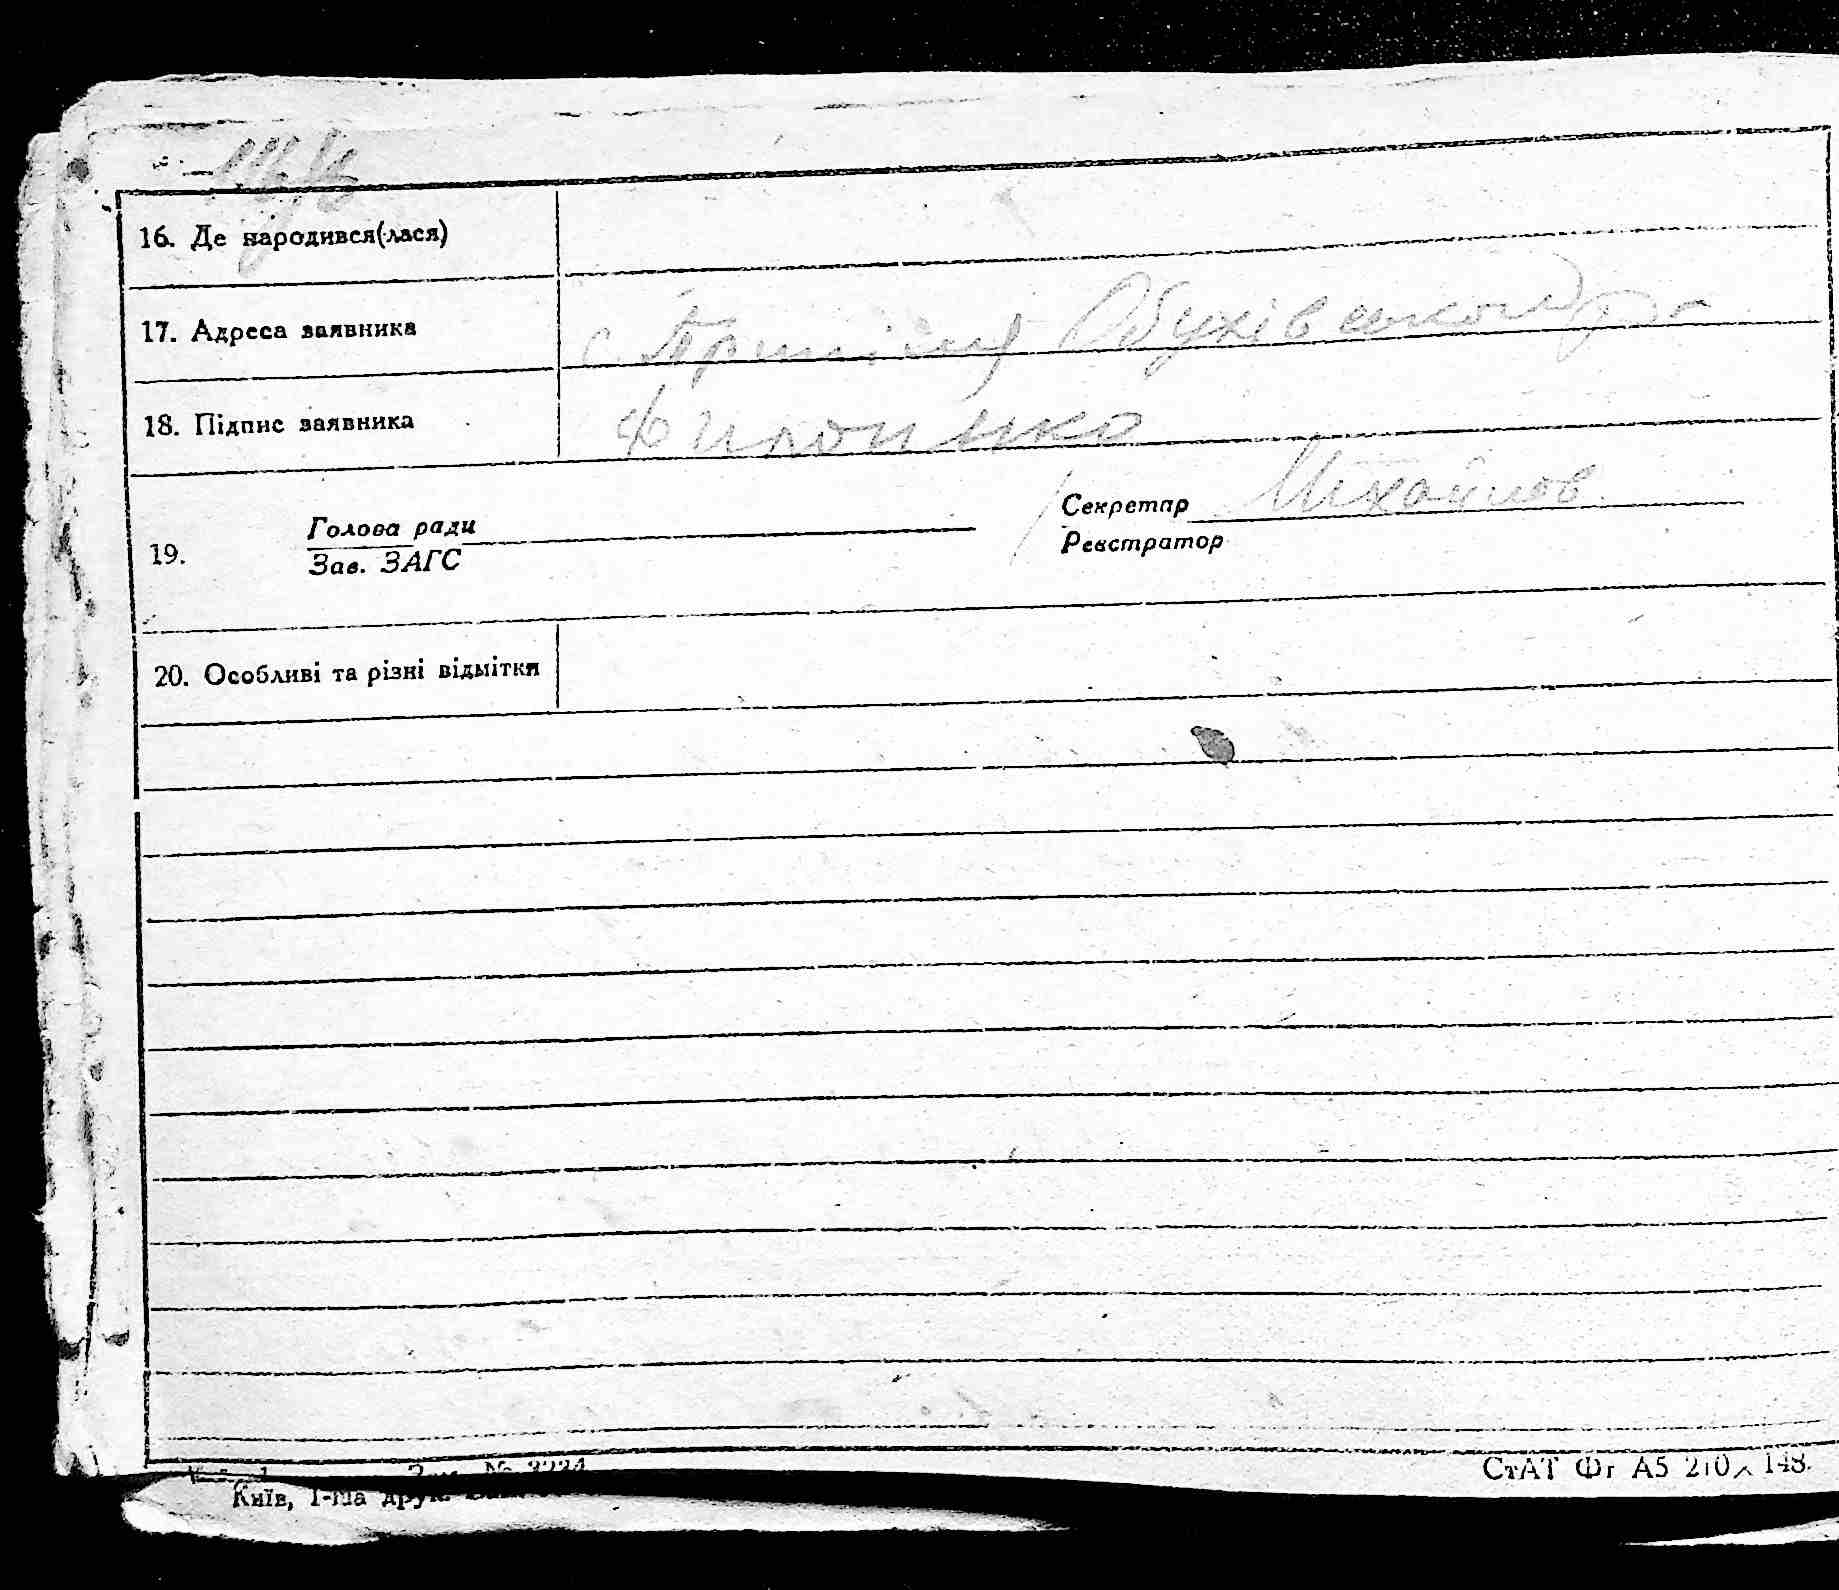 16. Де народився(лася)
17. Адреса заявника с. Обухівського р-
18. Підпис заявника Филоненко
19. Голова ради Секретар Михайлов
Зав. ЗАГС Реєстратор
20. Особливі та різні відмітки
СтАТ Фт А5 210× 148.
Київ, 1-ша друк.